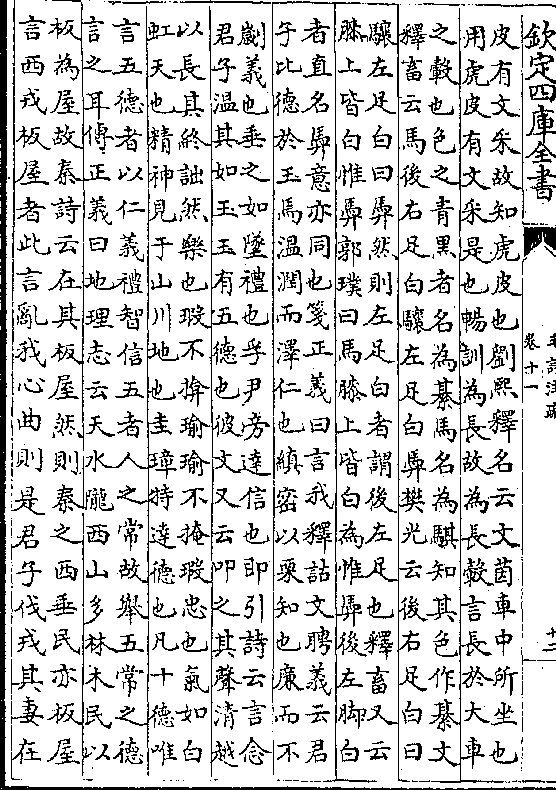 欽定四庫全書
毛詩注疏
卷十一
十二
皮有文采故知虎皮也劉熙釋名云文茵車中所坐也
用虎皮有文采是也暢訓為長故為長轂言長於大車
之轂也色之青黑者名為綦馬名為騏知其色作綦文
釋畜云馬後右足白驤左足白馵樊光云後右足白曰
驤左足白曰馵然則左足白者謂後左足也釋畜又云
膝上皆白惟馵郭璞曰馬膝上皆白為惟馵後左脚白
者直名馵意亦同也箋正義曰言我釋詁文聘義云君
子比德於玉焉温潤而澤仁也縝密以栗知也亷而不
劌義也垂之如墜禮也孚尹旁達信也即引詩云言念
君子温其如玉玉有五德也彼文又云叩之其聲清越
以長其終詘然樂也瑕不揜瑜瑜不掩瑕忠也氣如白
虹天也精神見于山川地也圭璋特達德也凡十德唯
言五德者以仁義禮智信五者人之常故舉五常之德
言之耳傳正義曰地理志云天水隴西山多林木民以
板為屋故秦詩云在其板屋然則秦之西垂民亦板屋
言西戎板屋者此言亂我心曲則是君子伐戎其妻在